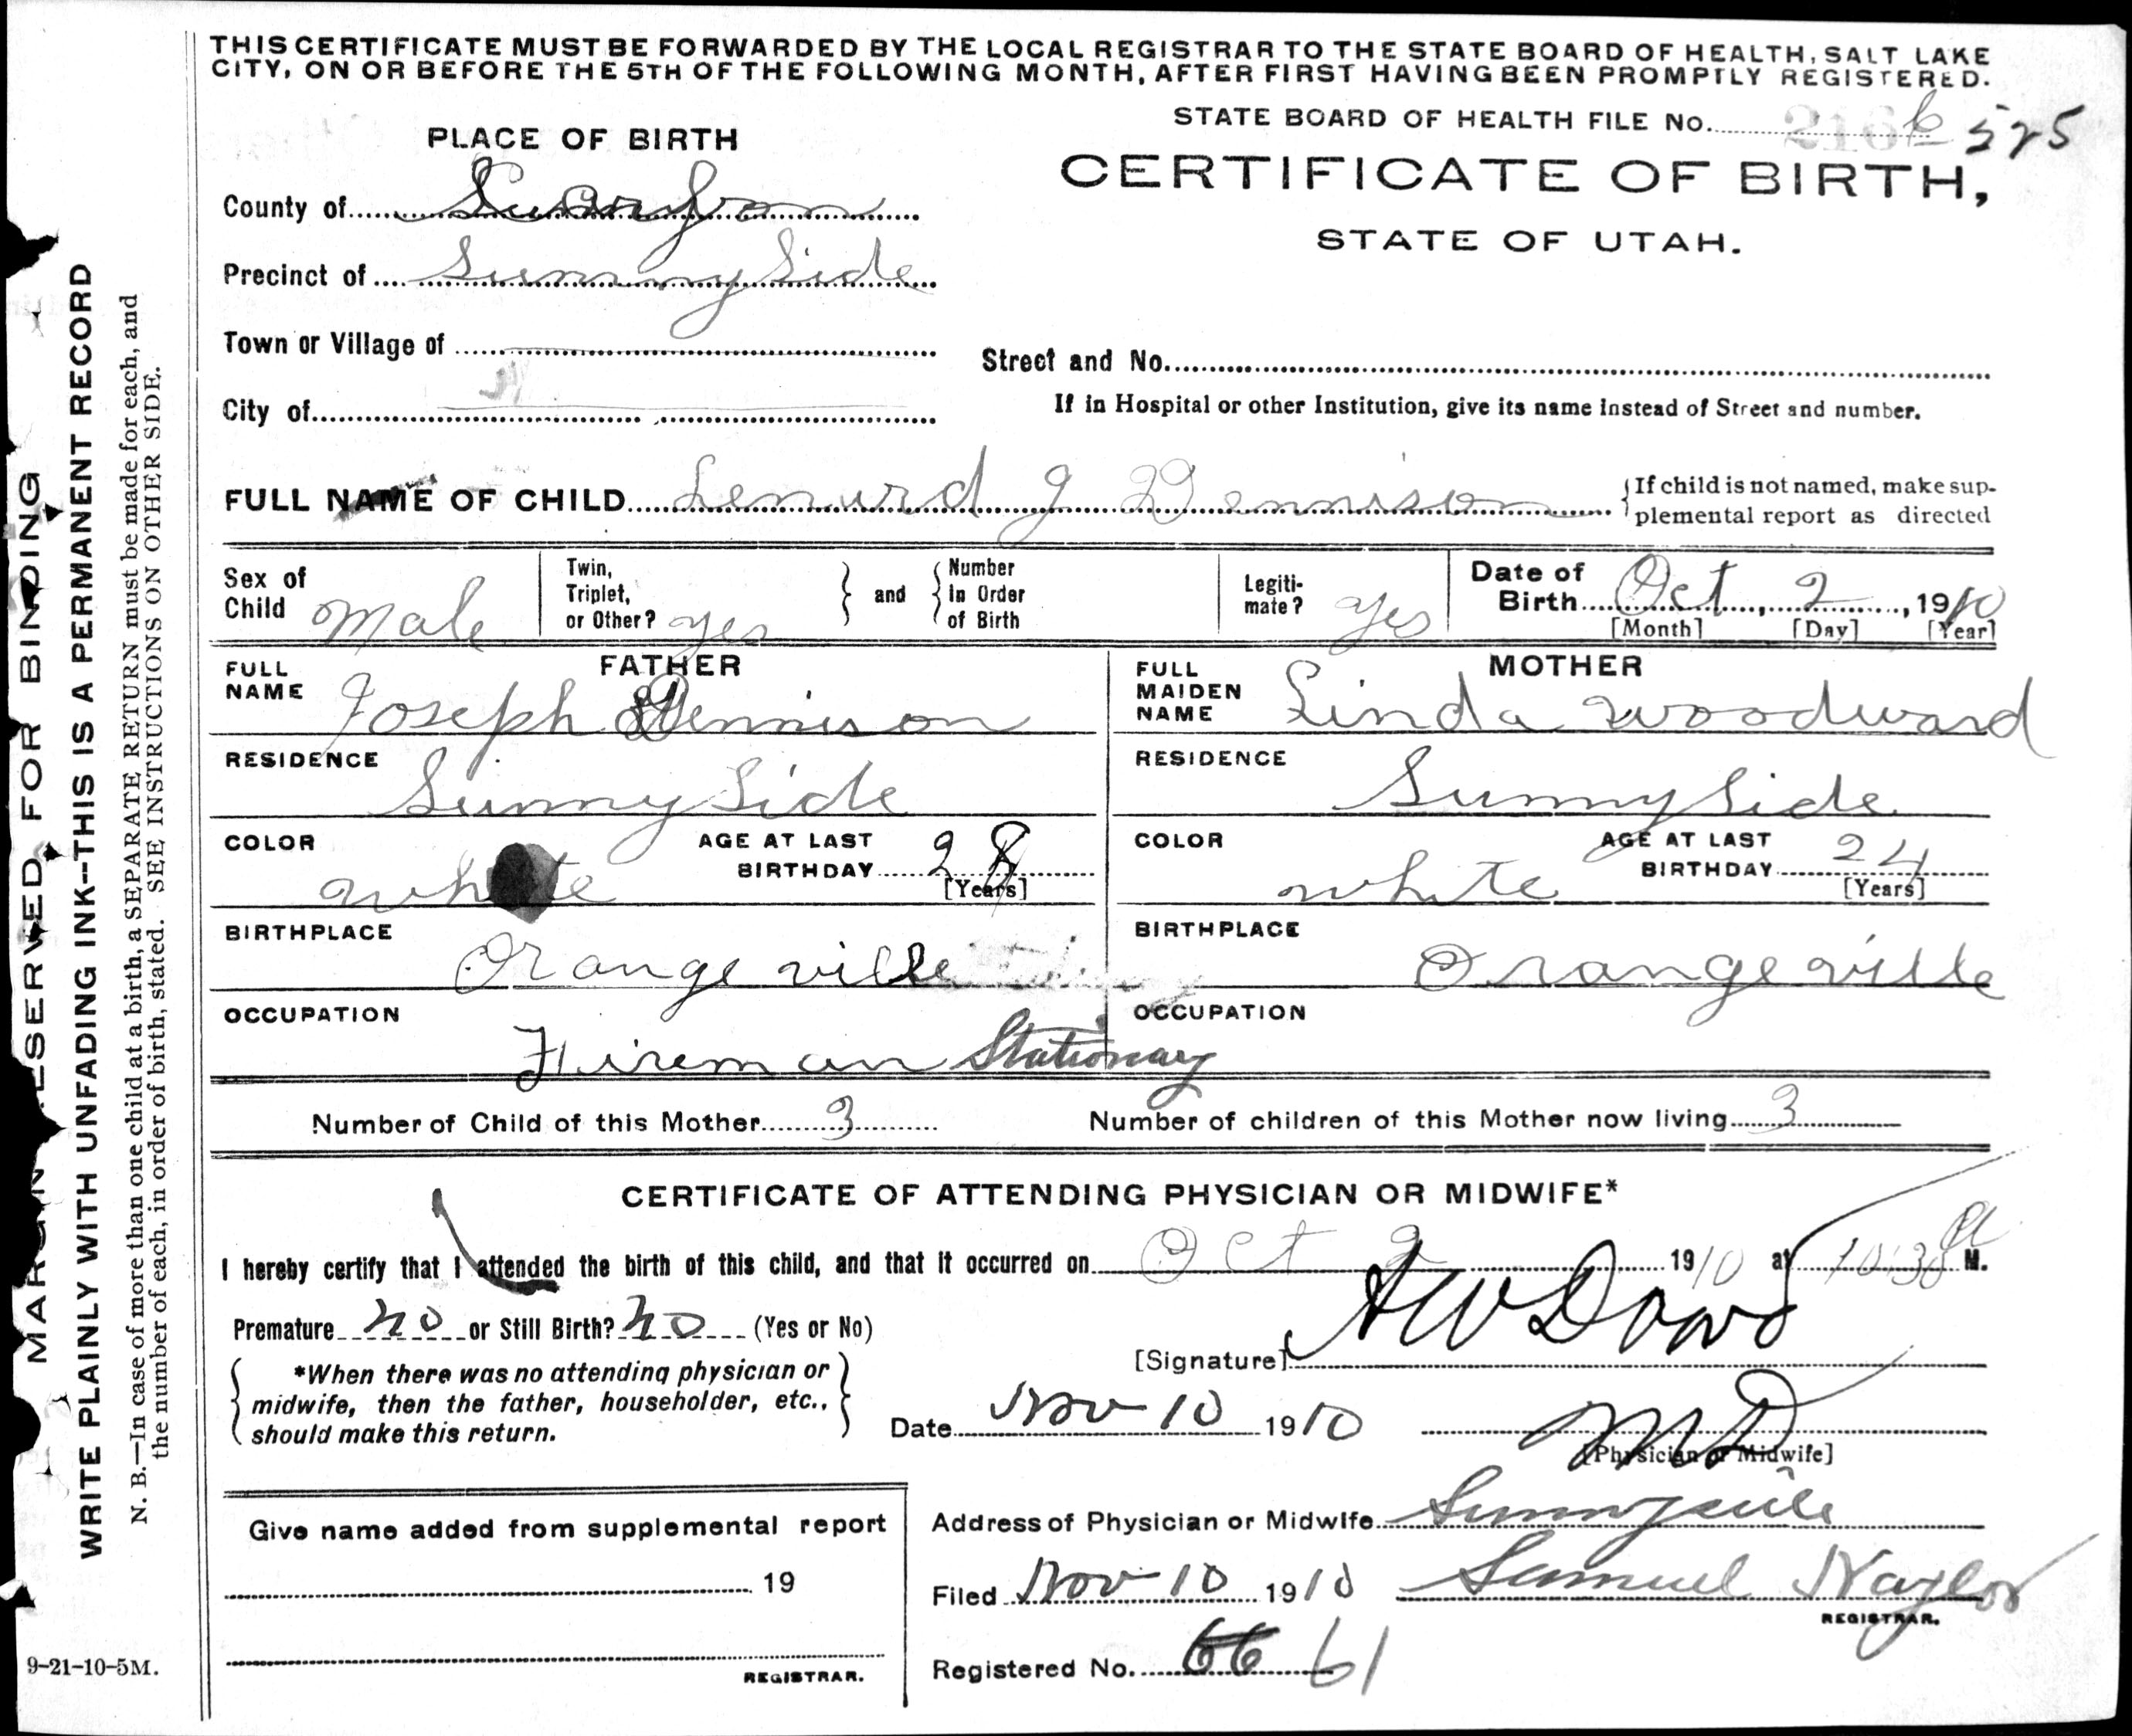 THIS CERTIFICATE MUST BE FORWARDED BY THE LOCAL REGISTRAR TO THE STATE BOARD OF HEALTH, SALT LAKE
CITY, ON OR BEFORE THE 5TH OF THE FOLLOWING MONTH, AFTER FIRST HAVING BEEN PROMPTLY REGISTERED.
STATE BOARD OF HEALTH FILE No. 525
PLACE OF BIRTH
CERTIFICATE OF BIRTH,
STATE OF UTAH.
County of Carbon
Precinct of Sunny Side
Town or Village of
Street and No.
City of
If in Hospital or other Institution, give its name instead of Street and number.
FULL NAME OF CHILD Lenurd J Dennison
{If child is not named, make sup-
plemental report as directed
Sex of Child Male
Twin, Triplet, or Other? yes } and { Number In Order of Birth
Legiti-mate? yes
Date of Birth Oct, 2, 1910
[Month] [Day] [Year]
FATHER
FULL NAME Joseph Dennison
RESIDENCE
Sunny Side
COLOR white
AGE AT LAST BIRTHDAY 28
[Years]
BIRTHPLACE
Orangeville
OCCUPATION
Fireman Stationary
MOTHER
FULL MAIDEN NAME Linda Woodward
RESIDENCE
Sunny Side
COLOR white
AGE AT LAST BIRTHDAY 24
[Years]
BIRTHPLACE
Orangeville
OCCUPATION
Number of Child of this Mother 3
Number of children of this Mother now living 3
CERTIFICATE OF ATTENDING PHYSICIAN OR MIDWIFE*
I hereby certify that I attended the birth of this child, and that it occurred on Oct 2 1910 at 10:30 a M.
Premature no or Still Birth? no (Yes or No)
[Signature] A W Dowd
{ *When there was no attending physician or
midwife, then the father, householder, etc.,
should make this return. }
Date Nov 10 1910
MD
[Physician or Midwife]
Give name added from supplemental report
19
REGISTRAR.
Address of Physician or Midwife Sunnyside
Filed Nov 10 1910 Samuel Naylor
REGISTRAR.
Registered No. 66 61
MARGIN RESERVED FOR BINDING
WRITE PLAINLY WITH UNFADING INK--THIS IS A PERMANENT RECORD
N. B.—In case of more than one child at a birth, a SEPARATE RETURN must be made for each, and
the number of each, in order of birth, stated. SEE INSTRUCTIONS ON OTHER SIDE.
9-21-10-5M.